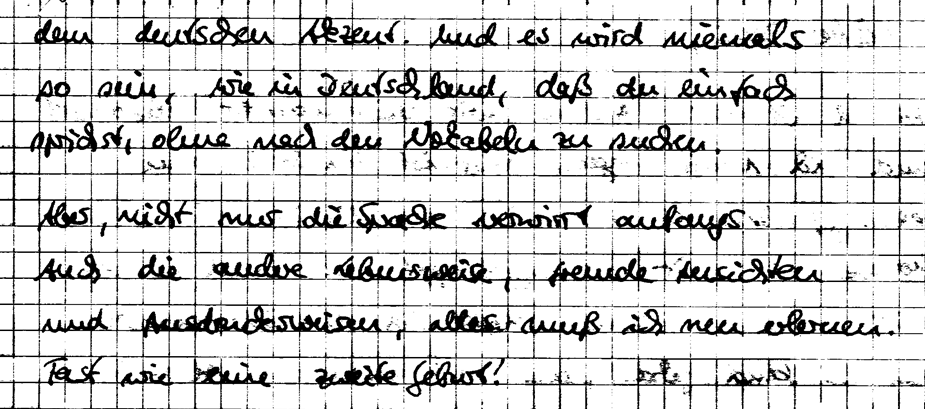 dem deutschen Akzent. Und es wird niemals
so sein, wie in Deutschland, daß du einfach
sprichst, ohne nach den Vokabeln zu suchen.
Aber, nicht nur die Sprache verwirrt anfangs.
Auch die andere Lebensweise, fremde Ansichten
und Ausdrucksweisen, alles muß ich neu erlernen.
Fast wie eine zweite Geburt!